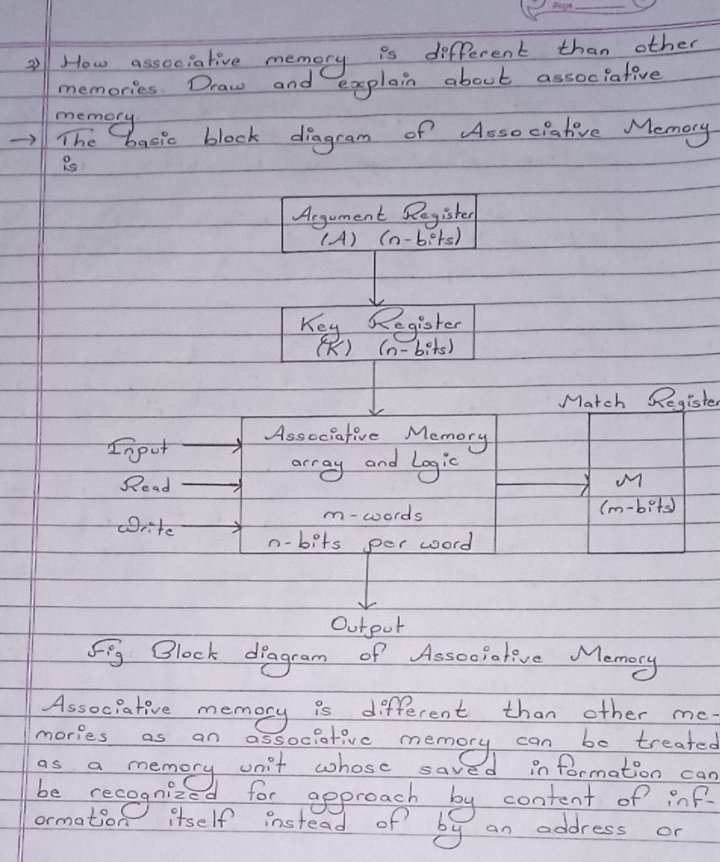 Page
2) How associative memory is different than other
memories. Draw and explain about associative
memory.
→ The basic block diagram of Associative Memory
is
Argument Register
(A) (n-bits)
Key Register
(K) (n-bits)
Match Register
Input
Associative Memory
array and Logic
Read
M
(m-bits)
Write
m-words
n-bits per word
Output
Fig. Block diagram of Associative Memory
Associative memory is different than other me-
mories as an associative memory can be treated
as a memory unit whose saved information can
be recognized for approach by content of inf-
ormation itself instead of by an address or